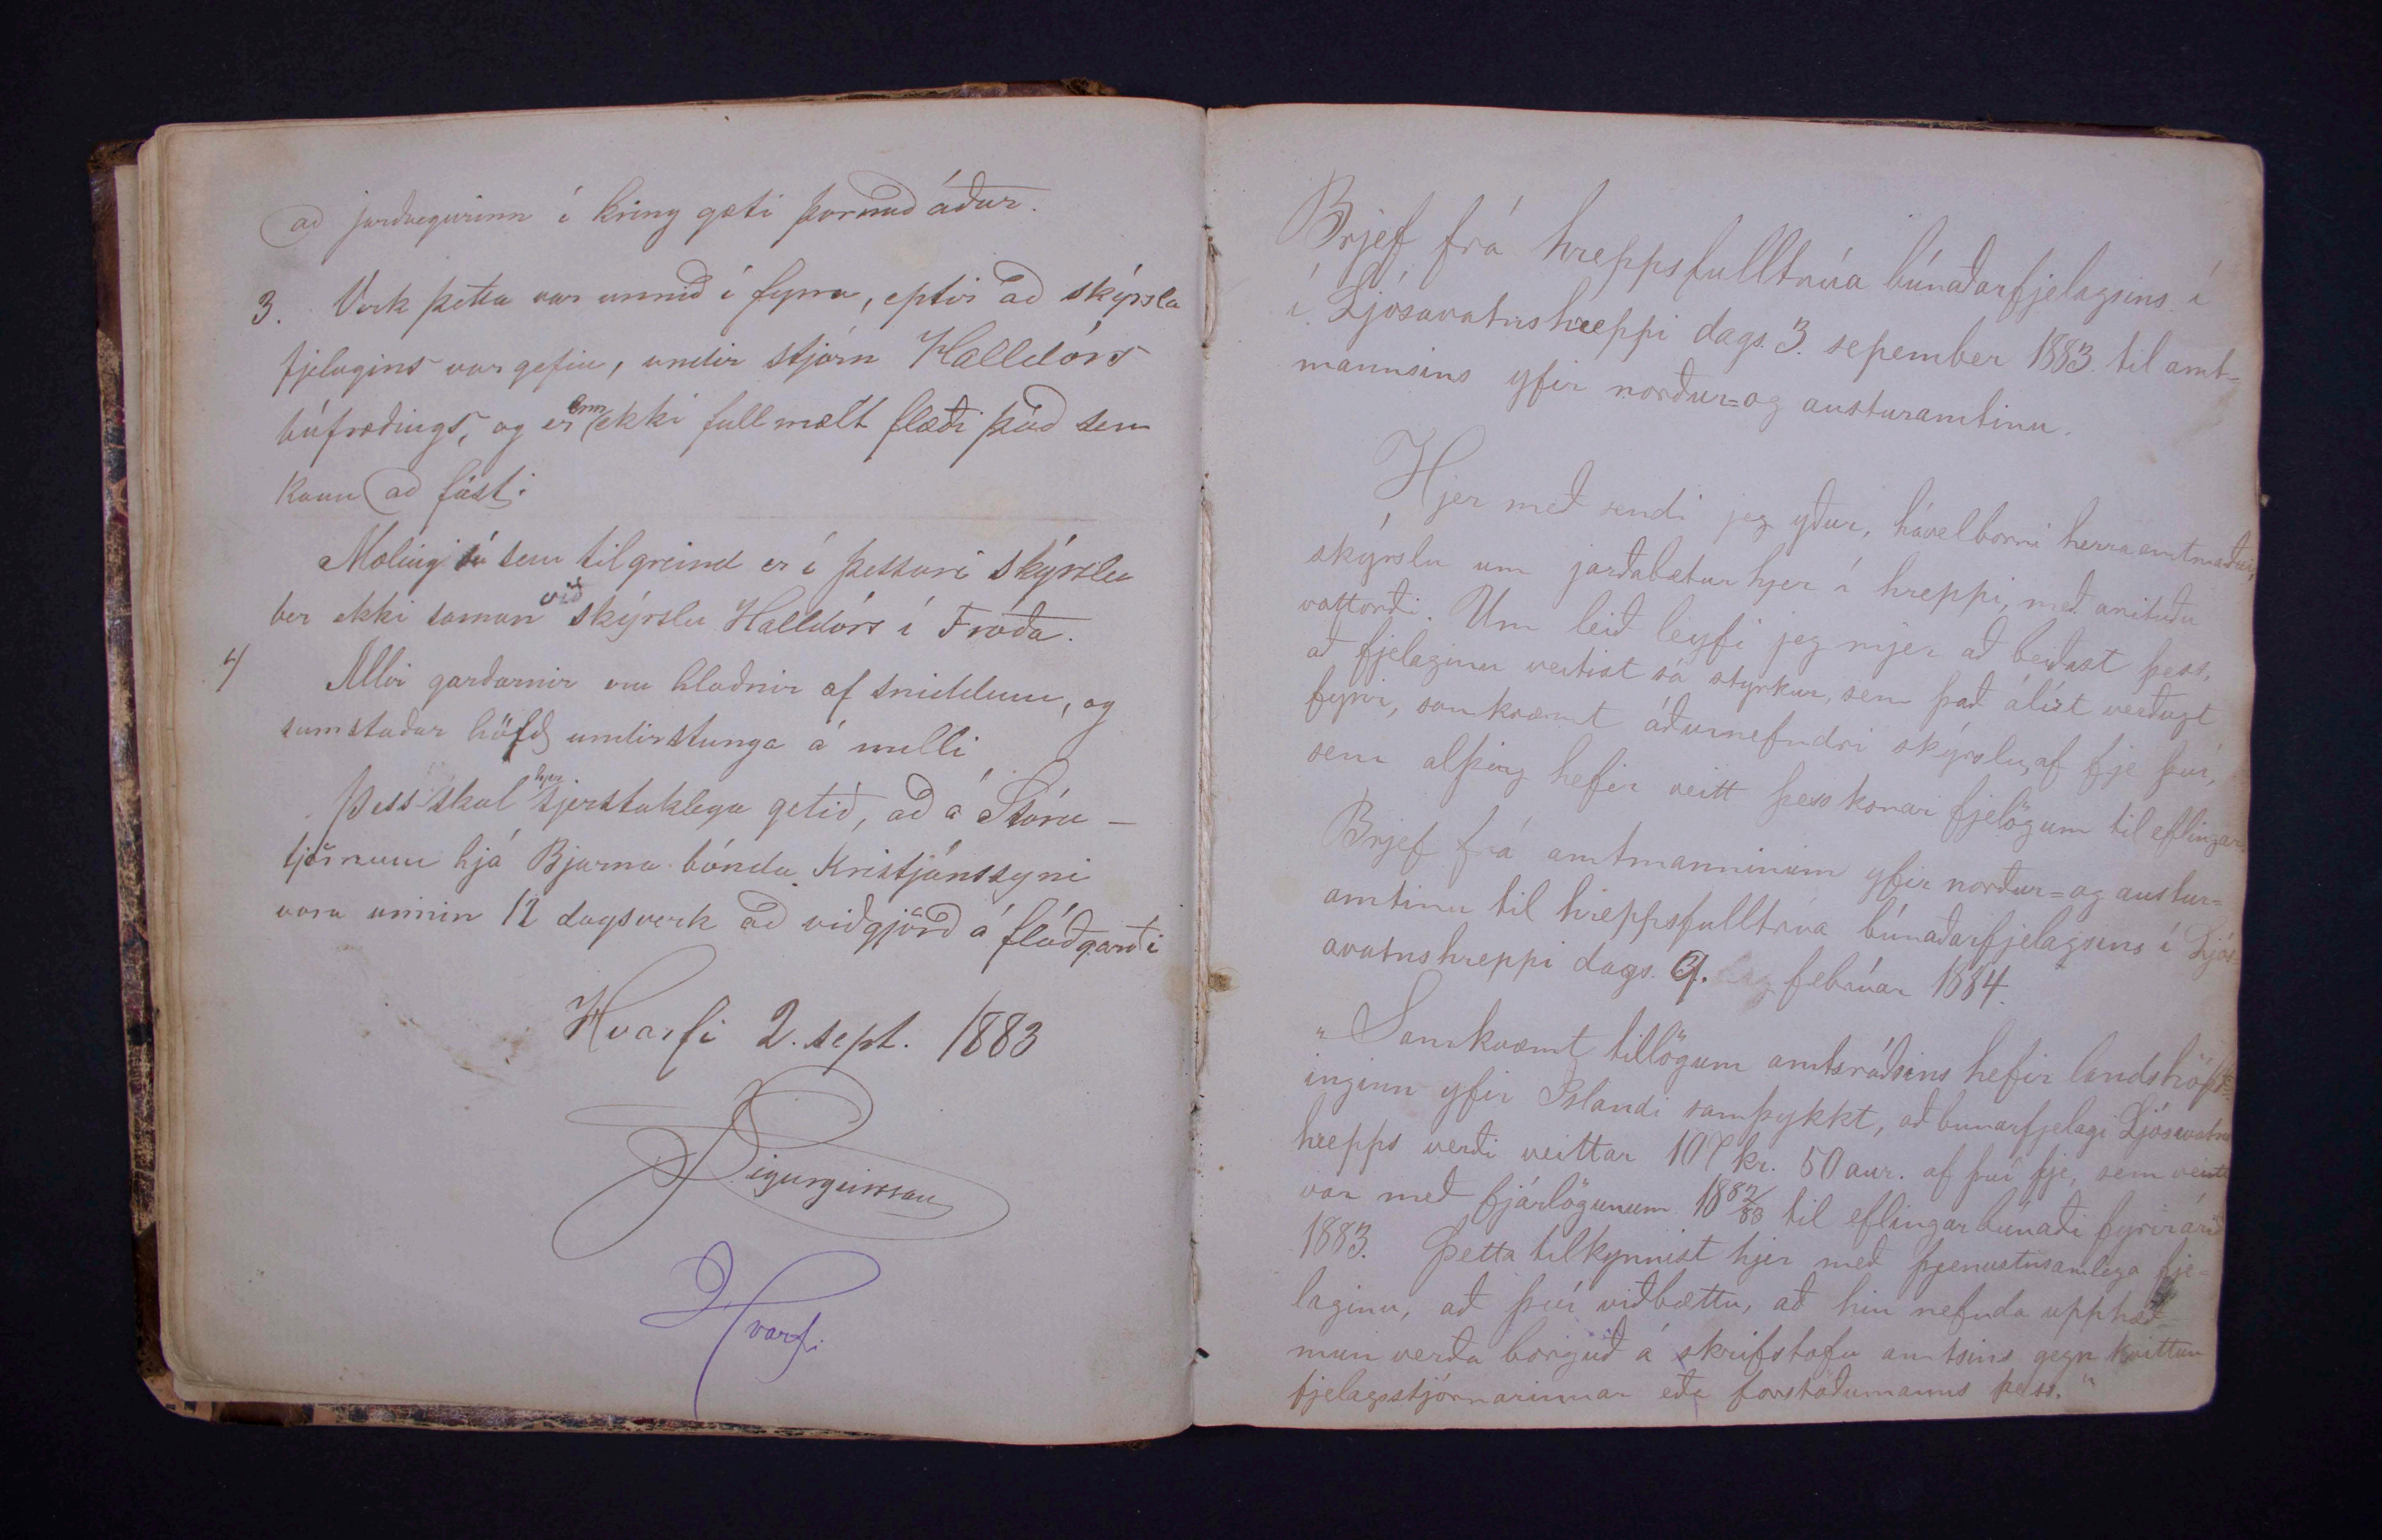 að jarðvegurinn í kring gæti þornað áður.
3. Verk þetta var unnið í fyrra, eptir að skýrsla
fjelagins var gefin, undir stjórn Halldórs
búfræðings, og er enn ekki full mælt flæði það sem
kann að fást.
Mæling sú sem tilgreind er í þessari skýrslu
ber ekki saman við skýrslu Halldórs í Fróða.
4) Allir garðarnir eru hlaðnir af sniddum, og
sumstaðar höfð undirstunga á milli
Þess skal hjer sjerstaklega getið, að á Stóru-
tjörnum hjá Bjarna bónda Kristjánssyni
voru unnin 12 dagsverk að viðgjörð á flóðgarði
Hvarfi 2. sept. 1883
Sigurgeirsson
Hvarfi
Brjef frá hreppsfulltrúa búnaðarfjelagsins í
í Ljósavatnshreppi dags. 3. sepember 1883. til amt=
mannsins yfir norður=og austuramtinu.
Hjer með sendi jeg yður, hávelborni herra amtmaður,
skýrslu um jarðabætur hjer í hreppi, með arituðu
vottorði. Um leið leyfi jeg mjer að beiðast þess,
að fjelaginu veitist sá styrkur, sem það álíst verðugt
fyrir, samkvæmt áðurnefndri skýrslu, af fje því,
sem alþing hefir veitt þess konar fjelögum til eflingar.
Brjef frá amtmanninum yfir norður=og austur=
amtinu til hreppsfulltrúa búnaðarfjelagsins í Ljós=
avatnshreppi dags. 9. febrúar 1884.
"Samkvæmt tillögum amtsráðsins hefir landshöfð=
inginn yfir Islandi samþykkt, að bunarfjelagi Ljósavatns
hrepps verði veittar 107 kr. 50 aur. af því fje, sem veitt
var með fjárlögunum 1882/83 til eflingar búnaði fyrir árið
1883. Þetta tilkynnist hjer með þjenustusamlega fje=
laginu, að því viðbættu, að hin nefnda upphæð
mun verða borguð á skrifstofu amtsins gegn kvittun
fjelagsstjórnarinnar eða forstöðumanns þess."